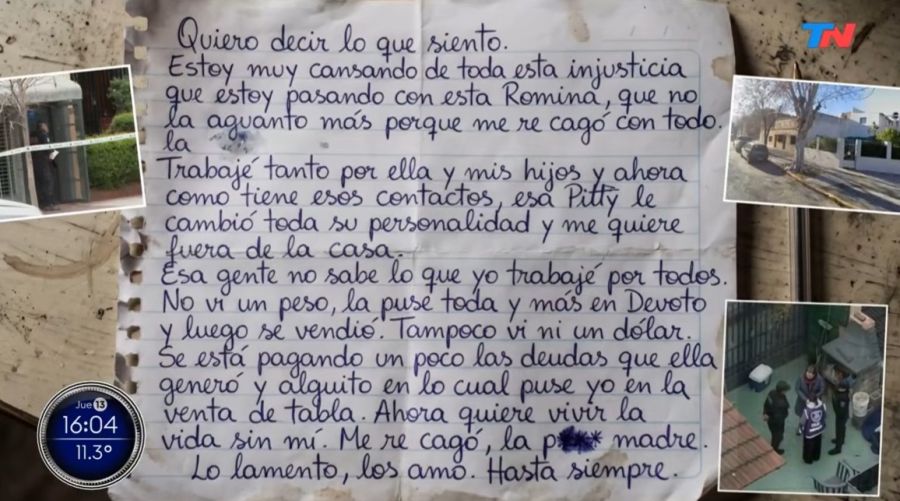 TN
Quiero decir lo que siento.
Estoy muy cansando de toda esta injusticia
que estoy pasando con esta Romina, que no
la aguanto más porque me re cagó con todo.
la
Trabajé tanto por ella y mis hijos y ahora
como tiene esos contactos, esa Pitty le
cambió toda su personalidad y me quiere
fuera de la casa.
Esa gente no sabe lo que yo trabajé por todos.
No vi un peso, la puse toda y más en Devoto
y luego se vendió. Tampoco vi ni un dólar.
Se está pagando un poco las deudas que ella
generó y alguito en lo cual puse yo en la
venta de tabla. Ahora quiere vivir la
vida sin mí. Me re cagó, la p*** madre.
Lo lamento, los amo. Hasta siempre.
Jue 13
16:04
11.3°